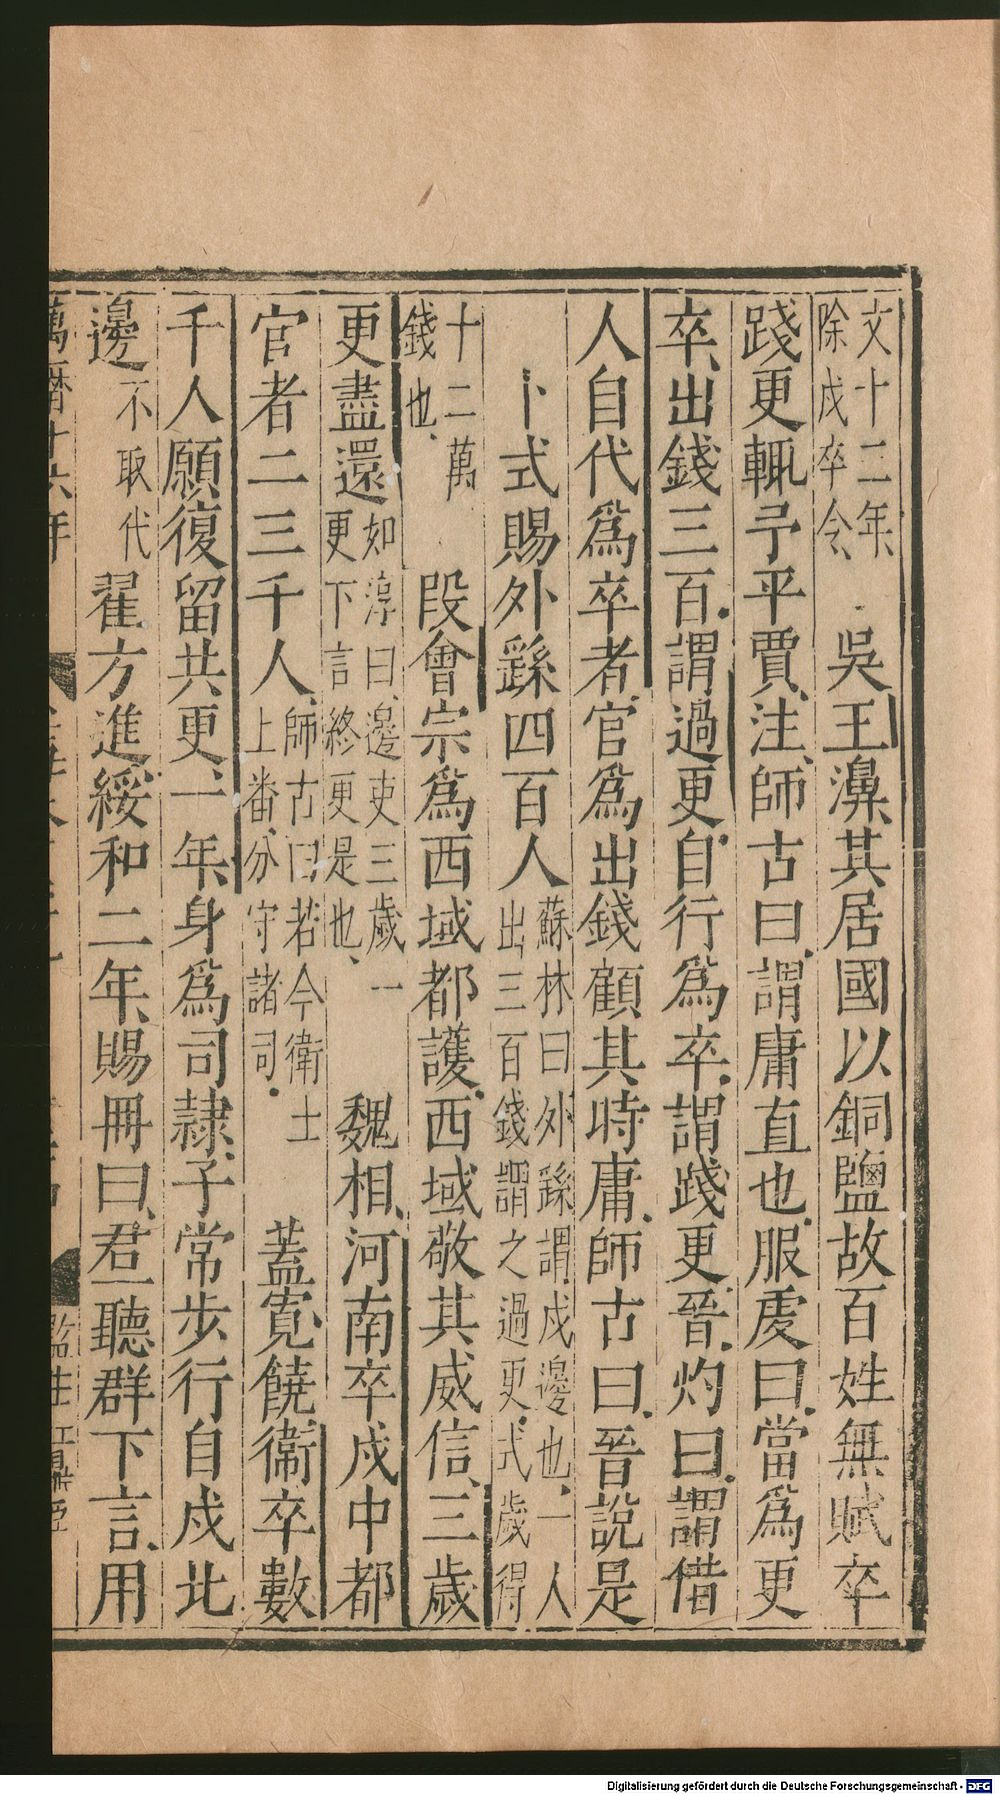 文十二年、除戍卒令、吳王濞其居國以銅鹽故百姓無賦卒
踐更輒予平賈、注、師古曰、謂庸直也、服虔曰、當爲更
卒、出錢三百、謂過更、自行爲卒、謂踐更、晉灼曰、謂借
人自代爲卒者、官爲出錢顧其時庸、師古曰、晉說是
卜式賜外繇四百人蘇林曰外繇謂戍邊也、一人出三百錢謂之過更、式歲得
十二萬錢也、段會宗爲西域都護、西域敬其威信、三歲
更盡還如淳曰、邊吏三歲一更下言終更是也、魏相、河南卒戍中都
官者二三千人、師古曰若今衛士上番分守諸司、蓋寬饒、衞卒數
千人願復留共更、一年、身爲司隷、子常步行自戍北
邊不取代翟方進、綏和二年、賜冊曰、君一聽群下言、用
萬曆十六年
監生
Digitalisierung gefördert durch die Deutsche Forschungsgemeinschaft - DFG